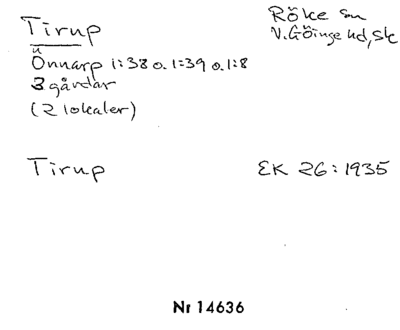 Tirup
Röke sn
V. Göinge hd, Sk
u
Önnarp 1:38 o. 1:39 o. 1:8
3 gårdar
(2 lokaler)
Tirup
EK 26:1935
Nr 14636